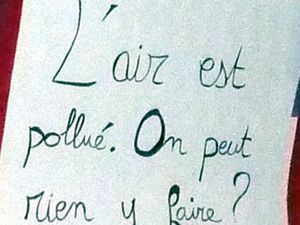 L'air est
pollué. On peut
rien y faire?